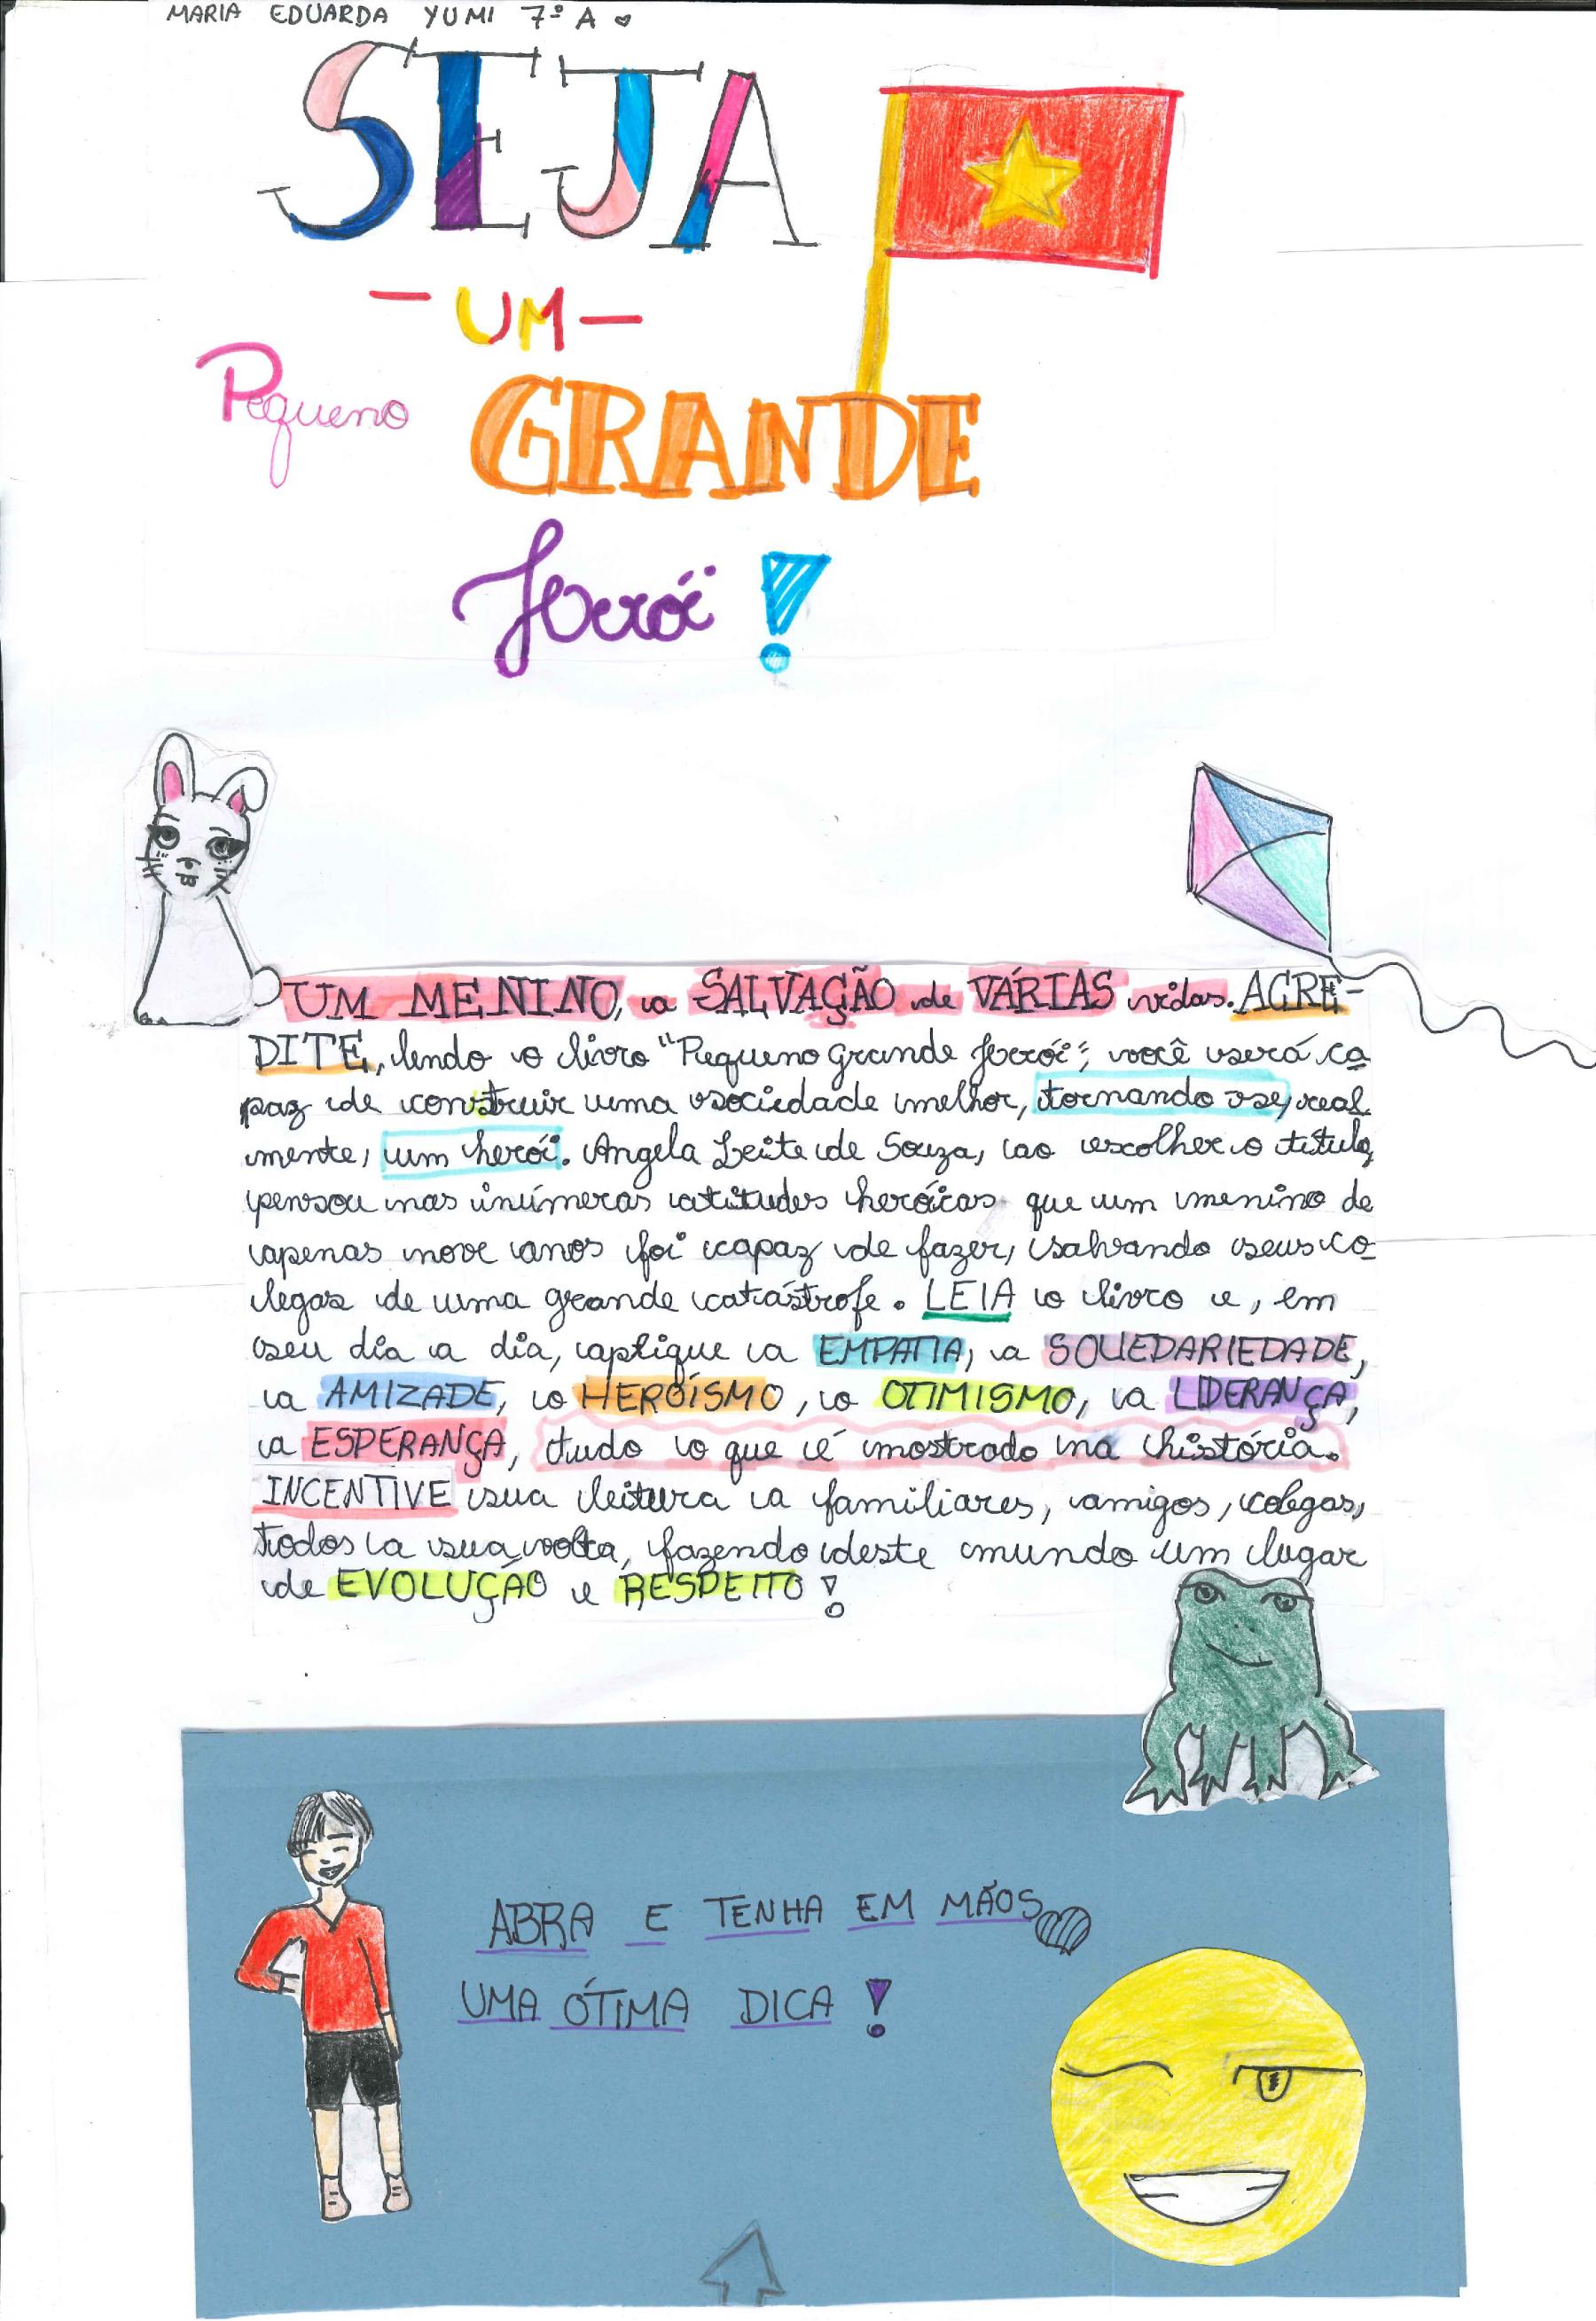 MARIA EDUARDA YUMI 7º A
SEJA
- UM -
Pequeno GRANDE
Herói !
UM MENINO, a SALVAÇÃO de VÁRIAS vidas. ACRE-
DITE, lendo o livro "Pequeno grande Herói", você será ca
paz de construir uma sociedade melhor, tornando-se, real
mente, um herói. Angela Leite de Souza, ao escolher o título,
pensou nas inúmeras atitudes heróicas que um menino de
apenas nove anos foi capaz de fazer, salvando seus co
legas de uma grande catástrofe. LEIA o livro e, em
seu dia a dia, aplique a EMPATIA, a SOLIEDARIEDADE,
a AMIZADE, o HEROÍSMO, o OTIMISMO, a LIDERANÇA,
a ESPERANÇA, tudo o que é mostrado na história.
INCENTIVE sua leitura a familiares, amigos, colegas,
todos a sua volta, fazendo deste mundo um lugar
de EVOLUÇÃO e RESPEITO !
ABRA E TENHA EM MÃOS
UMA ÓTIMA DICA !